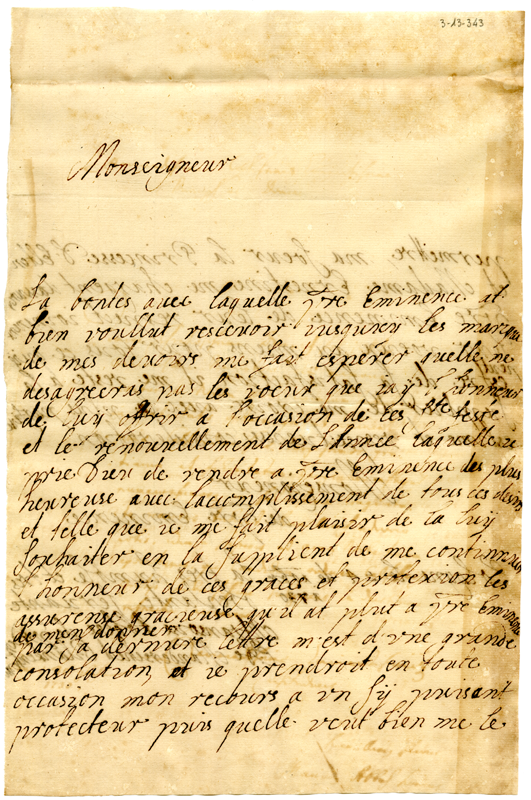 3-13-343
Monseigneur
La bontes avec laquelle Vre Eminence at
bien voullut rescevoir iusques les marque
de mes devoirs me fait espérer quelle ne
desagreeras pas les voeux que iay l'honneur
de luy offrir a l'occasion de ces Ste feste
et le renouvellement de L'Année laquelle ie
prie Dieu de rendre a Vre Eminence des plus
heureuse avec l'accomplissement de tous ces desirs
et telle que ie me fait plaisir de la luy
souhaiter en la supplient de me continuer
l'honneur de ces graces et protexion les
assurense gracieuse qu'il at plut a Vre Eminence
de m'en donner
par sa derniere lettre m'est d'vne grande
consolation et ie prendroit en toute
occasion mon recours a vn sy puisant
protecteur puis quelle veut bien me le